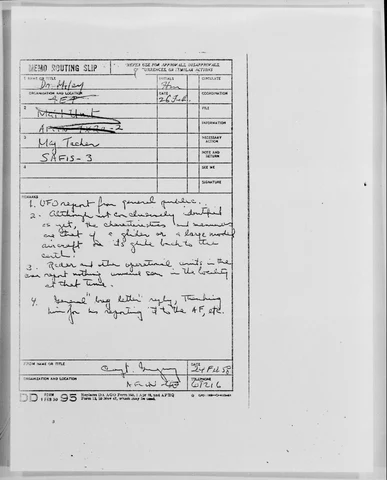 MEMO ROUTING SLIP
NEVER USE FOR APPROVALS, DISAPPROVALS, CONCURRENCES, OR SIMILAR ACTIONS
1 NAME OR TITLE
Dr. Miley
INITIALS
CIRCULATE
ORGANIZATION AND LOCATION
DATE
26 Feb.
COORDINATION
2
FILE
INFORMATION
3
Maj Tacker
NECESSARY ACTION
SAFIS-3
NOTE AND RETURN
4
SEE ME
SIGNATURE
REMARKS
1. UFO report from general public.
2. Although not conclusively identified
as yet, the characteristics and maneuvers
are that of a glider or a large model
aircraft in its glide back to the
earth.
3. Radar and other operational units in the
area report nothing unusual seen in the locality
at that time.
4. "General" bug letter reply, thanking
him for his reporting it to the AF, etc.
FROM NAME OR TITLE
Capt.
DATE
24 Feb 58
ORGANIZATION AND LOCATION
TELEPHONE
67216
DD FORM 1 FEB 50 95